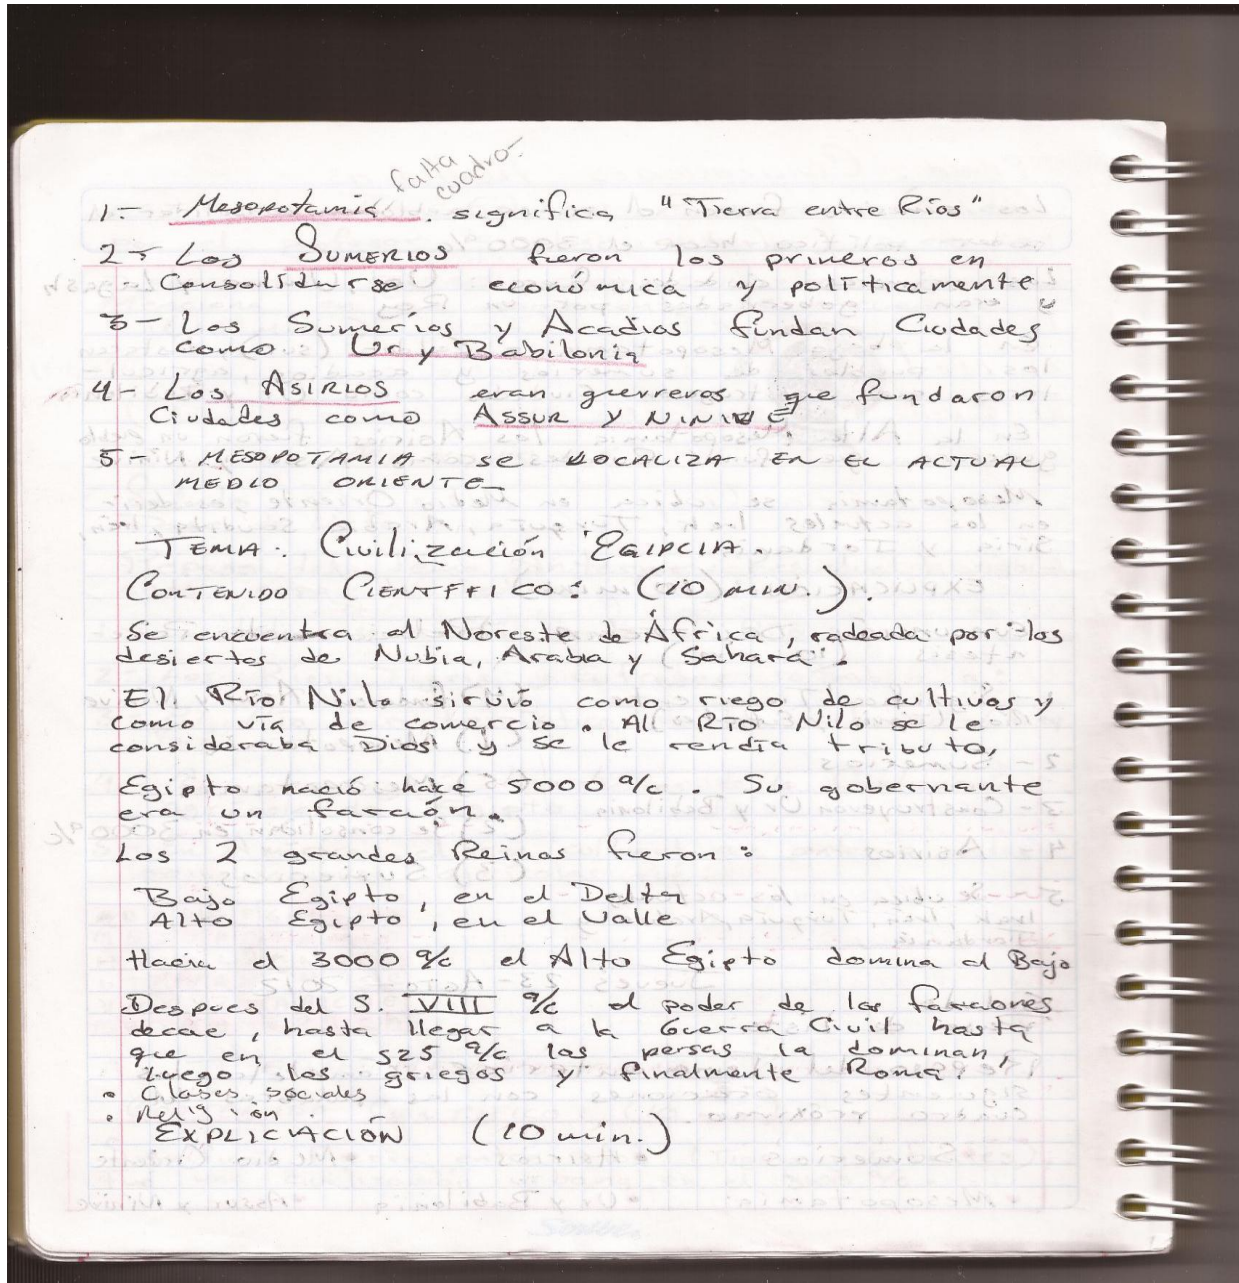 falta
cuadro-
1- Mesopotamia. significa "Tierra entre Ríos"
2- Los SUMERIOS fueron los primeros en
Consolidarse económica y políticamente
3- Los Sumerios y Acadios fundan Ciudades
como Ur y Babilonia
4- Los ASIRIOS eran guerreros que fundaron
Ciudades como ASSUR Y NINIVE
5- MESOPOTAMIA SE LOCALIZA EN EL ACTUAL
MEDIO ORIENTE-
TEMA: Civilización EGIPCIA.
CONTENIDO CIENTÍFICO: (10 MIN.).
Se encuentra al Noreste de África, rodeada por los
desiertos de Nubia, Arabia y Sahara.
El Río Nilo sirvió como riego de cultivos y
como vía de comercio. Al Río Nilo se le
consideraba Dios y se le rendía tributo,
Egipto nació hace 5000 a/c. Su gobernante
era un faraón.
Los 2 grandes Reinos fueron:
Bajo Egipto, en el Delta
Alto Egipto, en el Valle
Hacia el 3000 a/c el Alto Egipto domina al Bajo
Despues del S. VIII a/c el poder de los faraones
decae, hasta llegar a la Guerra Civil hasta
que en el 525 a/c los persas la dominan,
luego los griegos y finalmente Roma.
• Clases sociales
• Religión.
EXPLICIACIÓN (10 min.)